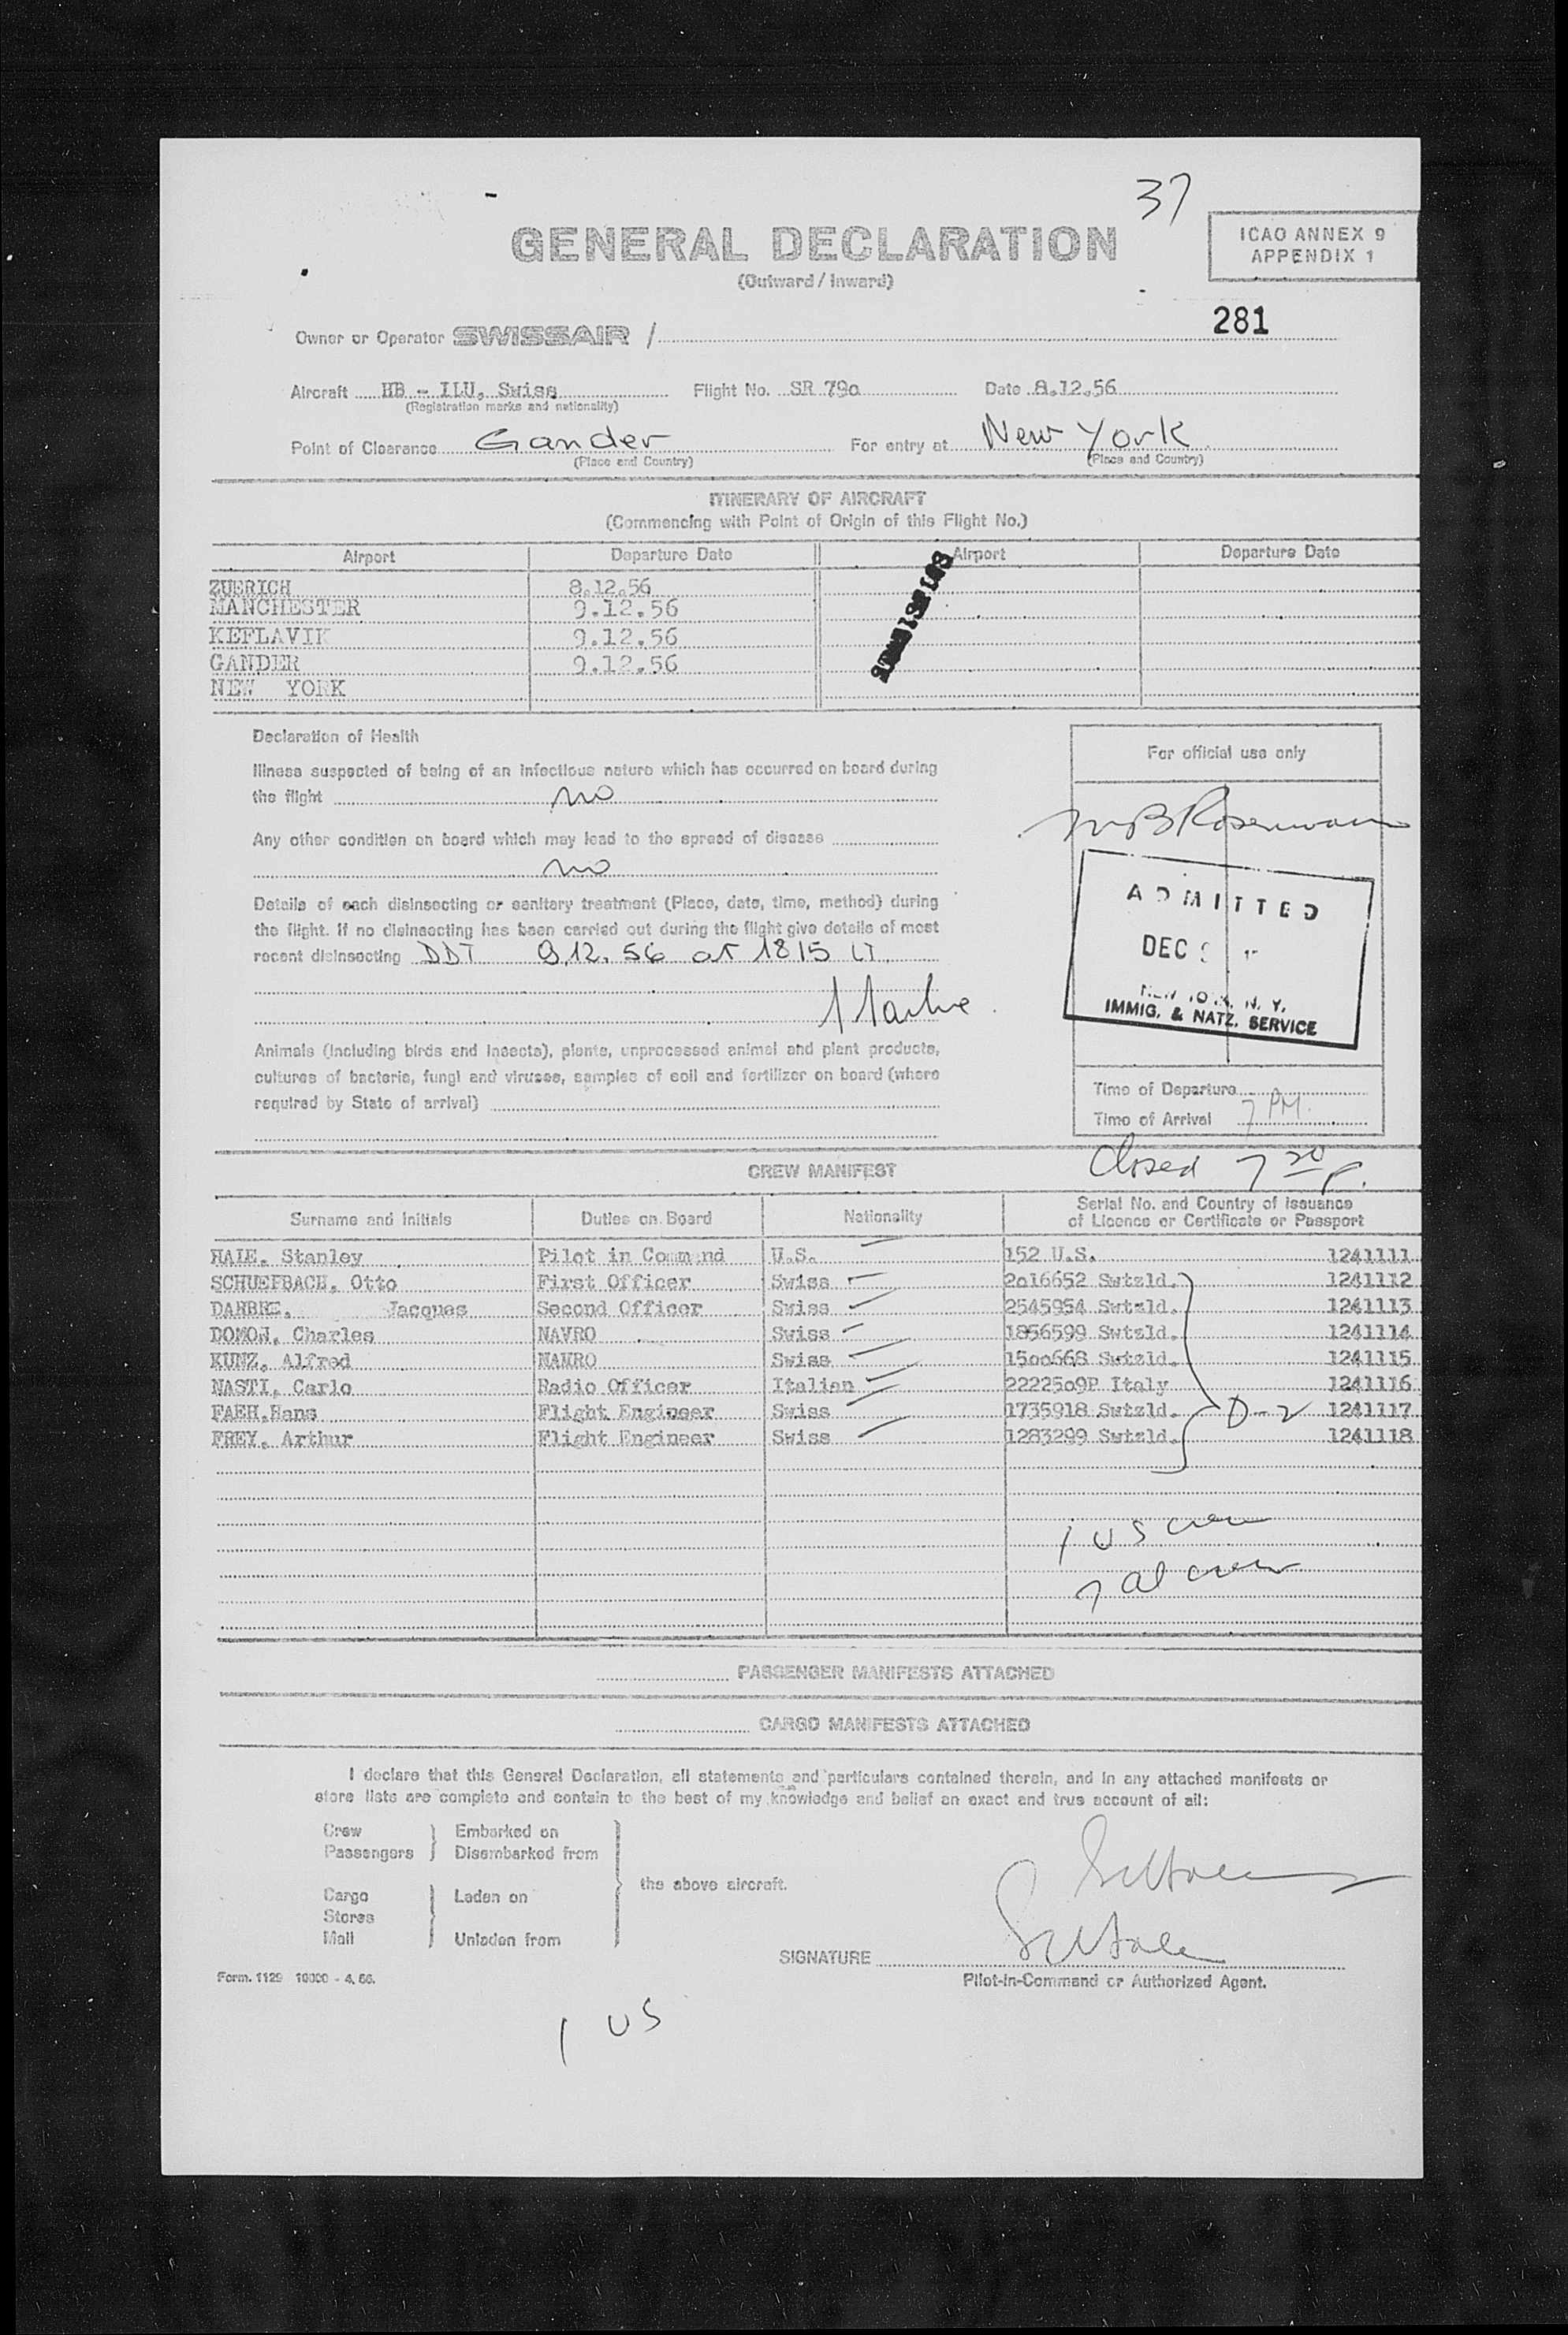 37
GENERAL DECLARATION
(Outward / Inward)
ICAO ANNEX 9
APPENDIX 1
281
Owner or Operator SWISSAIR /
Aircraft HB - ILU, Swiss Flight No. SR 79o Date 8.12.56
(Registration marks and nationality)
Point of Clearance Gander For entry at New York
(Place and Country) (Place and Country)
ITINERARY OF AIRCRAFT
(Commencing with Point of Origin of this Flight No.)
Airport Departure Date Airport Departure Date
ZUERICH 8.12.56
MANCHESTER 9.12.56
KEFLAVIK 9.12.56
GANDER 9.12.56
NEW YORK
Declaration of Health
Illness suspected of being of an infectious nature which has occurred on board during
the flight no
Any other condition on board which may lead to the spread of disease
no
Details of each disinsecting or sanitary treatment (Place, date, time, method) during
the flight. If no disinsecting has been carried out during the flight give details of most
recent disinsecting DDT 9.12.56 at 1815 LT
Animals (including birds and insects), plants, unprocessed animal and plant products,
cultures of bacteria, fungi and viruses, samples of soil and fertilizer on board (where
required by State of arrival)
For official use only
ADMITTED
DEC 9
N. Y.
IMMIG. & NATZ. SERVICE
Time of Departure
Time of Arrival 7 PM.
Closed 7 30 p.
CREW MANIFEST
Surname and Initials Duties on Board Nationality Serial No. and Country of Issuance
of Licence or Certificate or Passport
HALE, Stanley Pilot in Command U.S. 152 U.S. 1241111
SCHUEPBACH, Otto First Officer Swiss 2o16652 Swtzld. 1241112
DARBRE, Jacques Second Officer Swiss 2545954 Swtzld. 1241113
DOMON, Charles NAVRO Swiss 1856599 Swtzld. 1241114
KUNZ, Alfred NAVRO Swiss 15oo668 Swtzld. 1241115
NASTI, Carlo Radio Officer Italian 22225o9P Italy 1241116
FAEH.Hans Flight Engineer Swiss 1735918 Swtzld. D-2 1241117
FREY, Arthur Flight Engineer Swiss 1283299 Swtzld. 1241118
1 US crew
7 al crew
PASSENGER MANIFESTS ATTACHED
CARGO MANIFESTS ATTACHED
I declare that this General Declaration, all statements and particulars contained therein, and in any attached manifests or
store lists are complete and contain to the best of my knowledge and belief an exact and true account of all:
Crew Embarked on
Passengers Disembarked from
the above aircraft.
Cargo Laden on
Stores
Mail Unladen from
SIGNATURE
Pilot-in-Command or Authorized Agent.
Form. 1129 10000 - 4. 56.
1 US